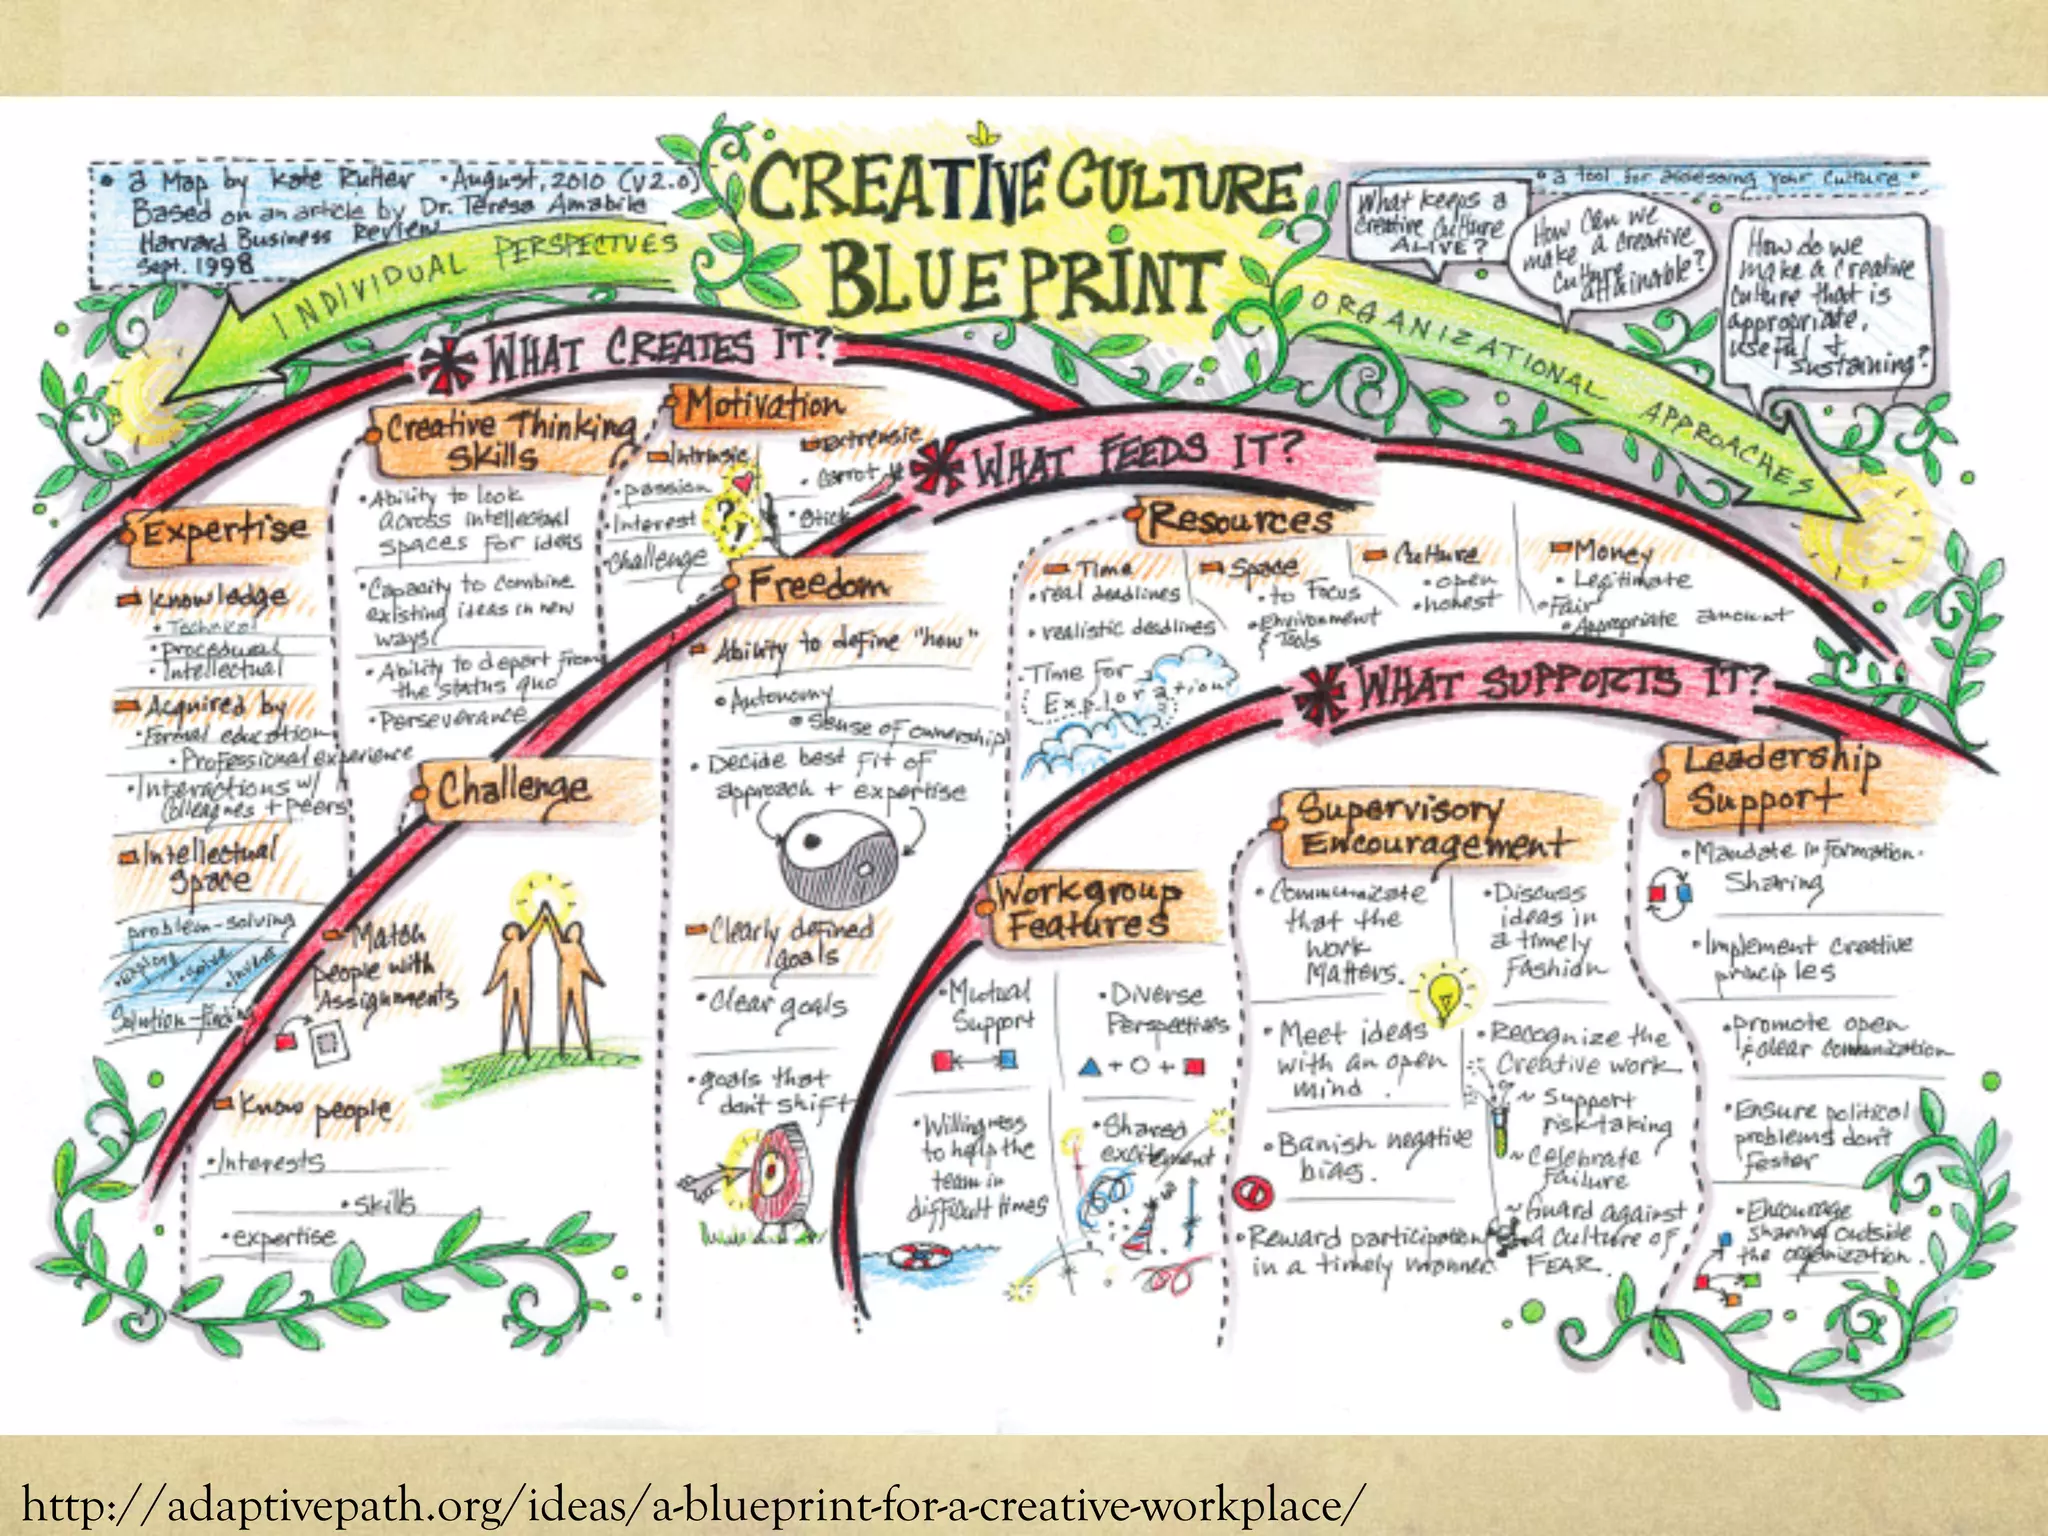 CREATIVE CULTURE
BLUEPRINT
• a Map by Kate Rutter • August, 2010 (v2.0)
Based on an article by Dr. Teresa Amabile
Harvard Business Review
Sept. 1998
INDIVIDUAL PERSPECTIVES
• a tool for assessing your culture •
What keeps a
creative culture
ALIVE?
How can we
make a creative
culture
attainable?
How do we
make a creative
culture that is
appropriate,
useful &
sustaining?
ORGANIZATIONAL APPROACHES
WHAT CREATES IT?
Expertise
Knowledge
• Technical
• procedural
• Intellectual
Acquired by
• Formal education
• Professional experience
• Interactions w/
colleagues + peers
Intellectual
space
problem-solving
• explore • solve • invent
Solution-finding
Creative Thinking
Skills
• Ability to look
across intellectual
spaces for ideas
• Capacity to combine
existing ideas in new
ways
• Ability to depart from
the status quo
• Perseverance
Motivation
Intrinsic
• passion
• Interest
• challenge
Extrensic
• Carrot
• Stick
WHAT FEEDS IT?
Challenge
Match
people with
Assignments
Know people
• Interests
• skills
• expertise
Freedom
Ability to define "how"
• Autonomy
• Sense of ownership
• Decide best fit of
approach + expertise
Clearly defined
goals
• Clear goals
• goals that
don't shift
Resources
Time
• real deadlines
• realistic deadlines
• Time for
Exploration
Space
• to Focus
• Environment
& Tools
Culture
• open
• honest
Money
• Legitimate
• Fair
• Appropriate amount
WHAT SUPPORTS IT?
Workgroup
Features
• Mutual
Support
• Diverse
Perspectives
• Willingness
to help the
team in
difficult times
• Shared
excitement
Supervisory
Encouragement
• Communicate
that the
work
Matters.
• Meet ideas
with an open
mind.
• Banish negative
bias.
• Reward participation
in a timely manner
• Discuss
ideas in
a timely
fashion
• Recognize the
Creative work
~ Support
risk-taking
~ Celebrate
Failure
~ Guard against
a culture of
FEAR.
Leadership
Support
• Mandate information-
Sharing
• Implement creative
principles
• promote open
& clear communication
• Ensure political
problems don't
fester
• Encourage
sharing outside
the organization.
http://adaptivepath.org/ideas/a-blueprint-for-a-creative-workplace/